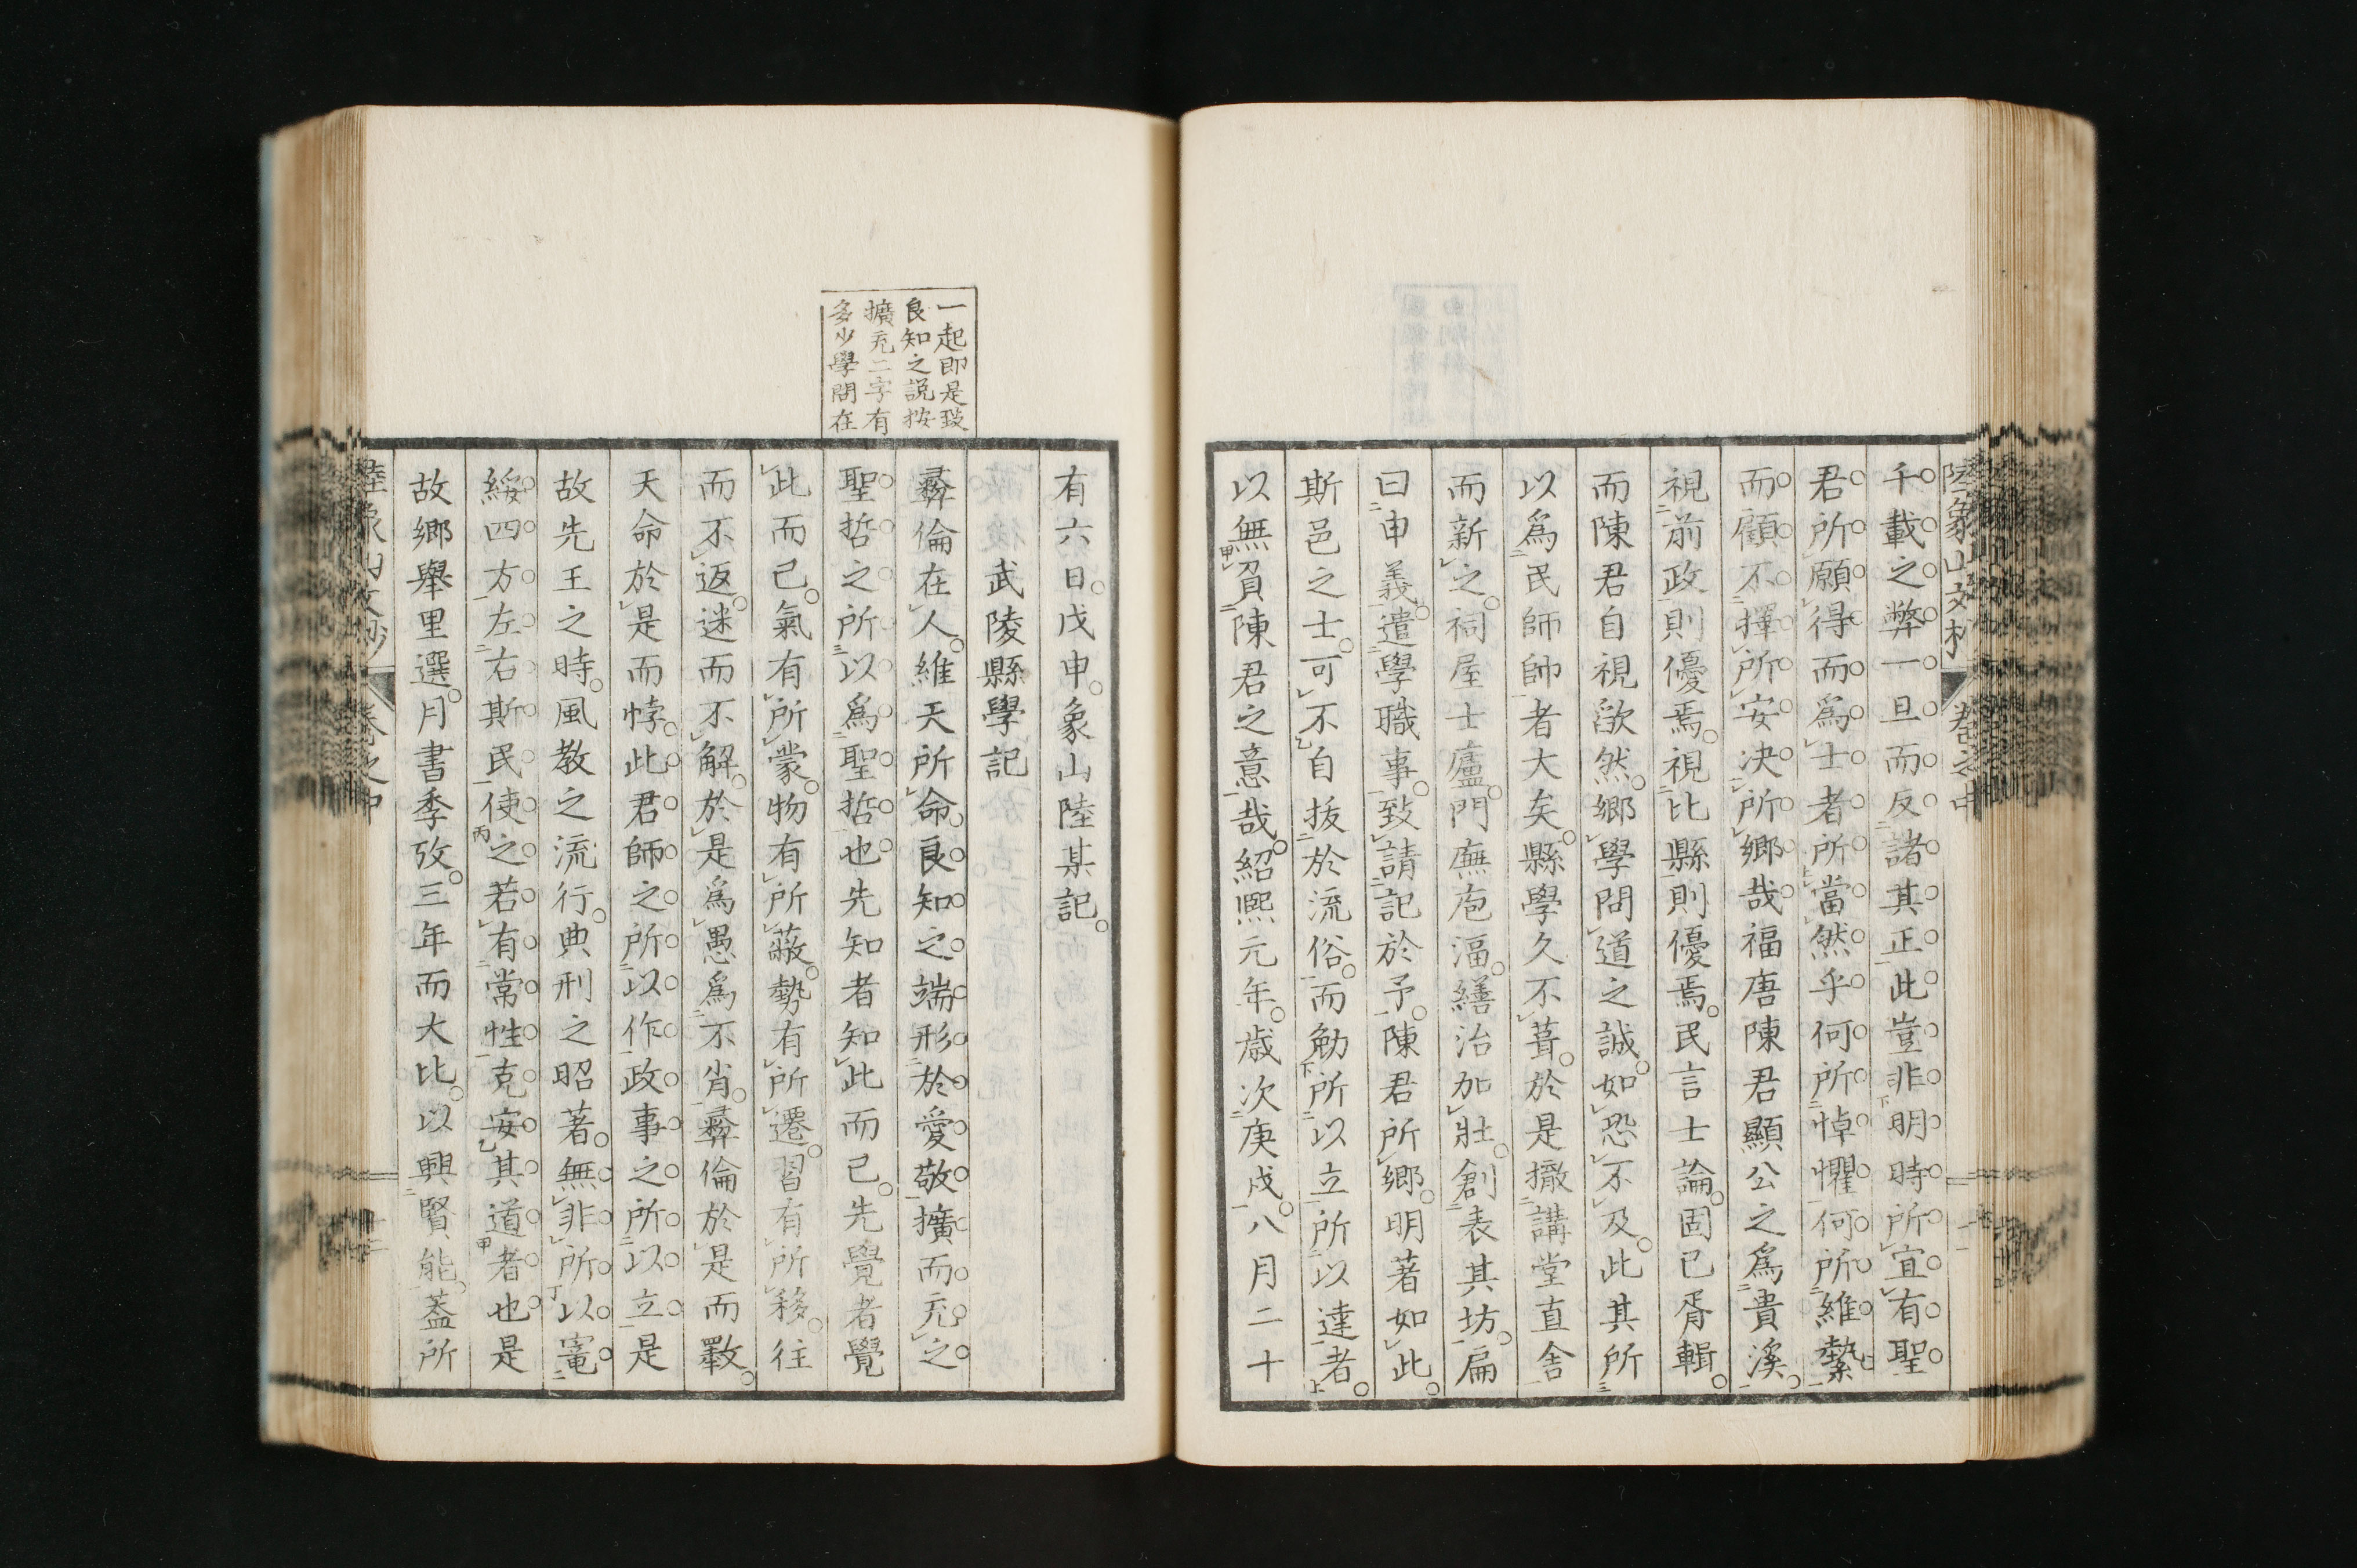 千載之弊一旦而反諸其正此豈非明時所宜有聖
君所願得而爲士者所當然乎何所悼懼何所維縶
而顧不擇所安決所鄉哉福唐陳君顯公之爲貴溪
視前政則優焉視比縣則優焉民言士論固已胥輯
而陳君自視欿然鄉學問道之誠如恐不及此其所
以爲民師帥者大矣縣學久不葺於是撤講堂直舍
而新之祠屋士廬門廡庖湢繕治加壯創表其坊扁
曰申義遣學職事致請記於予陳君所鄉明著如此
斯邑之士可不自拔於流俗而勉所以立所以達者
以無負陳君之意哉紹熙元年歲次庚戌八月二十
一起即是致
良知之説按
擴充二字有
多少學問在
有六日戊申象山陸某記
武陵縣學記
彝倫在人維天所命良知之端形於愛敬擴而充之
聖哲之所以爲聖哲也先知者知此而已先覺者覺
此而已氣有所蒙物有所蔽勢有所遷習有所移往
而不返迷而不解於是爲愚爲不肖彝倫於是而斁
天命於是而悖此君師之所以作政事之所以立是
故先王之時風教之流行典刑之昭著無非所以寵
綏四方左右斯民使之若有常性克安其道者也是
故鄉舉里選月書季攷三年而大比以興賢能蓋所